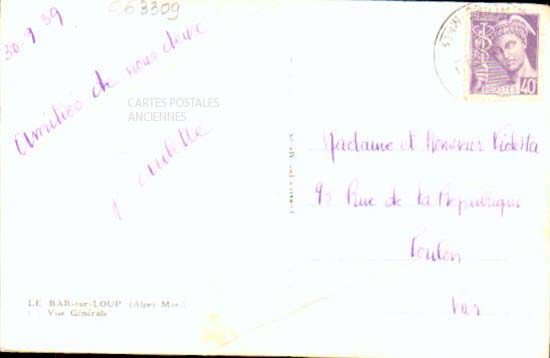 C63309
30.9.39
Amitiés de nous deux
CARTES POSTALES
ANCIENNES
Madame et Monsieur Violetta
92 Rue de la République
Toulon
Var
POSTES 40
LE BAR-sur-LOUP (Alpes-Mar.)
Vue Générale